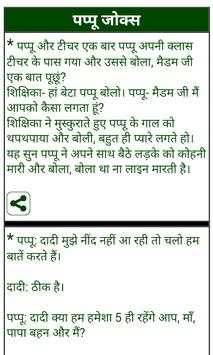 पप्पू जोक्स
* पप्पू और टीचर एक बार पप्पू अपनी क्लास
टीचर के पास गया और उससे बोला, मैडम जी
एक बात पूछूं?
शिक्षिका- हां बेटा पप्पू बोलो। पप्पू- मैडम जी मैं
आपको कैसा लगता हूं?
शिक्षिका ने मुस्कुराते हुए पप्पू के गाल को
थपथपाया और बोली, बहुत ही प्यारे लगते हो।
यह सुन पप्पू ने अपने साथ बैठे लड़के को कोहनी
मारी और बोला, बोला था ना लाइन मारती है।
* पप्पू: दादी मुझे नींद नहीं आ रही तो चलो हम
बातें करते हैं।
दादी: ठीक है।
पप्पू: दादी क्या हम हमेशा 5 ही रहेंगे आप, माँ,
पापा बहन और मैं?